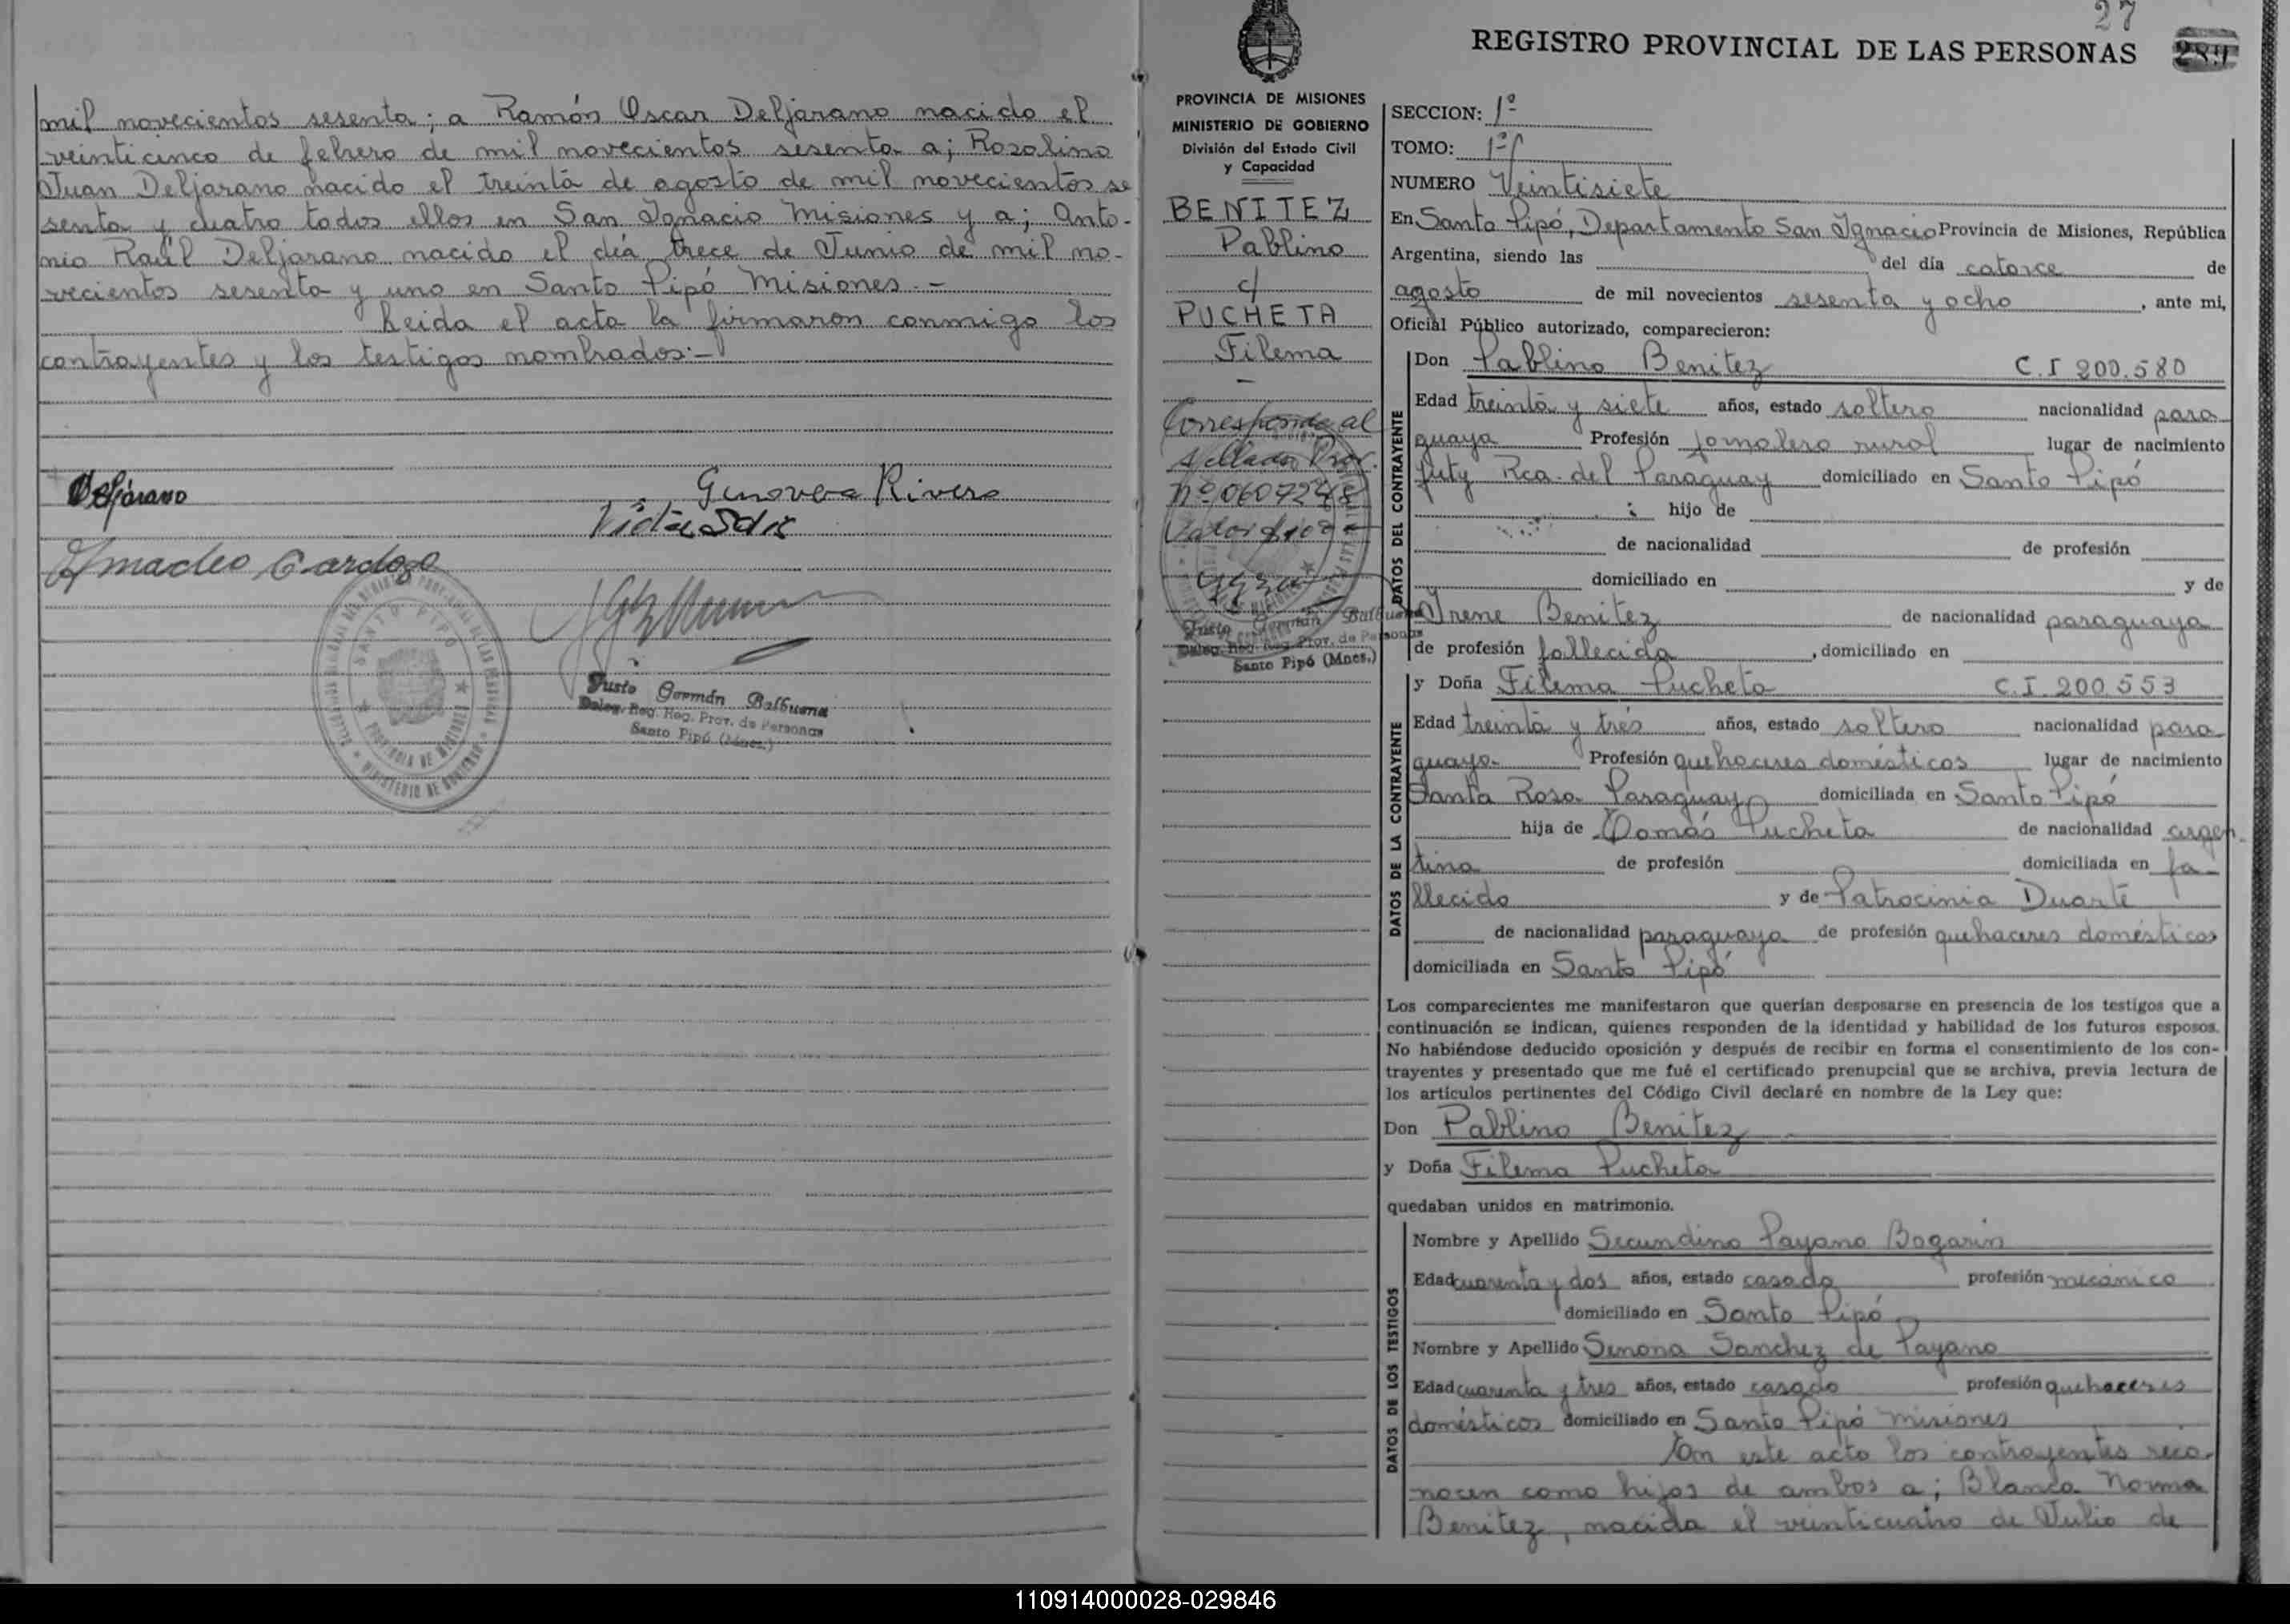 mil novecientos sesenta; a Ramón Oscar Deljarano nacido el
veinticinco de febrero de mil novecientos sesenta a; Rosalino
Juan Deljarano nacido el treinta de agosto de mil novecientos se
senta y cuatro todos ellos en San Ignacio Misiones y a; Anto-
nio Raúl Deljarano nacido el día trece de Junio de mil no-
vecientos sesenta y uno en Santo Pipó Misiones.-
Leida el acta la firmaron conmigo los
contrayentes y los testigos nombrados:-
Deljarano
Genoveva Rivero
Amadeo Cardozo
SANTO PIPO
PROVINCIA DE MISIONES
MINISTERIO DE GOBIERNO
Justo Germán Balbuena
Deleg. Reg. Reg. Prov. de Personas
Santo Pipó (Mnes.)
27
REGISTRO PROVINCIAL DE LAS PERSONAS
PROVINCIA DE MISIONES
MINISTERIO DE GOBIERNO
División del Estado Civil
y Capacidad
BENITEZ
Pablino
c/
PUCHETA
Filema
-
Corresponde al
sellado Prov.
nº 0607248
Valor $100
Justo Germán Balbuena
Deleg. Reg. Reg. Prov. de Personas
Santo Pipó (Mnes.)
SECCION: 1º
TOMO: 1º
NUMERO Veintisiete
En Santo Pipó, Departamento San Ignacio Provincia de Misiones, República
Argentina, siendo las del día catorce de
agosto de mil novecientos sesenta y ocho, ante mi,
Oficial Público autorizado, comparecieron:
DATOS DEL CONTRAYENTE
Don Pablino Benitez C.I 200.580
Edad treinta y siete años, estado soltero nacionalidad para
guaya Profesión jornalero rural lugar de nacimiento
Yuty Rca. del Paraguay domiciliado en Santo Pipó
hijo de
de nacionalidad de profesión
domiciliado en y de
Irene Benitez de nacionalidad paraguaya
de profesión fallecida, domiciliado en
DATOS DE LA CONTRAYENTE
y Doña Filema Pucheta C.I. 200.553
Edad treinta y tres años, estado soltera nacionalidad para
guaya- Profesión quehaceres domésticos lugar de nacimiento
Santa Rosa Paraguay domiciliada en Santo Pipó
hija de Tomás Pucheta de nacionalidad argen
tina de profesión domiciliada en fa-
llecido y de Patrocinia Duarte
de nacionalidad paraguaya de profesión quehaceres domésticos
domiciliada en Santo Pipó
Los comparecientes me manifestaron que querían desposarse en presencia de los testigos que a
continuación se indican, quienes responden de la identidad y habilidad de los futuros esposos.
No habiéndose deducido oposición y después de recibir en forma el consentimiento de los con-
trayentes y presentado que me fué el certificado prenupcial que se archiva, previa lectura de
los artículos pertinentes del Código Civil declaré en nombre de la Ley que:
Don Pablino Benitez
y Doña Filema Pucheta
quedaban unidos en matrimonio.
DATOS DE LOS TESTIGOS
Nombre y Apellido Secundino Payano Bogarin
Edad cuarenta y dos años, estado casado profesión mecánico
domiciliado en Santo Pipó
Nombre y Apellido Simona Sanchez de Payano
Edad cuarenta y tres años, estado casada profesión quehaceres
domésticos domiciliado en Santo Pipó Misiones
En este acto los contrayentes reco-
nocen como hijos de ambos a; Blanca Norma
Benitez, nacida el veinticuatro de Julio de
110914000028-029846